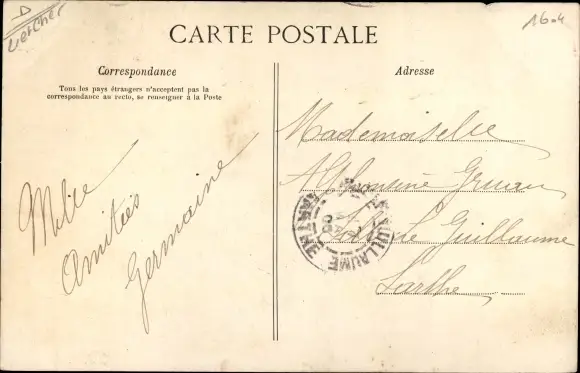 D
Loir et Cher
1604
CARTE POSTALE
Correspondance
Tous les pays étrangers n'acceptent pas la
correspondance au recto, se renseigner à la Poste
Mille
Amitiés
Germaine
Adresse
Mademoiselle
Alphonsine
Guillaume
Sarthe
GUILLAUME
SARTHE